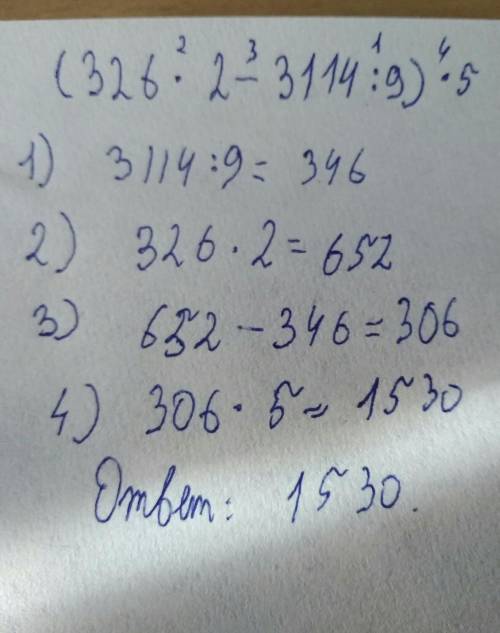 (326 ·² 2 −³ 3114 :¹ 9) ·⁴ 5
1) 3114 : 9 = 346
2) 326 · 2 = 652
3) 652 − 346 = 306
4) 306 · 5 = 1530
Ответ: 1530.